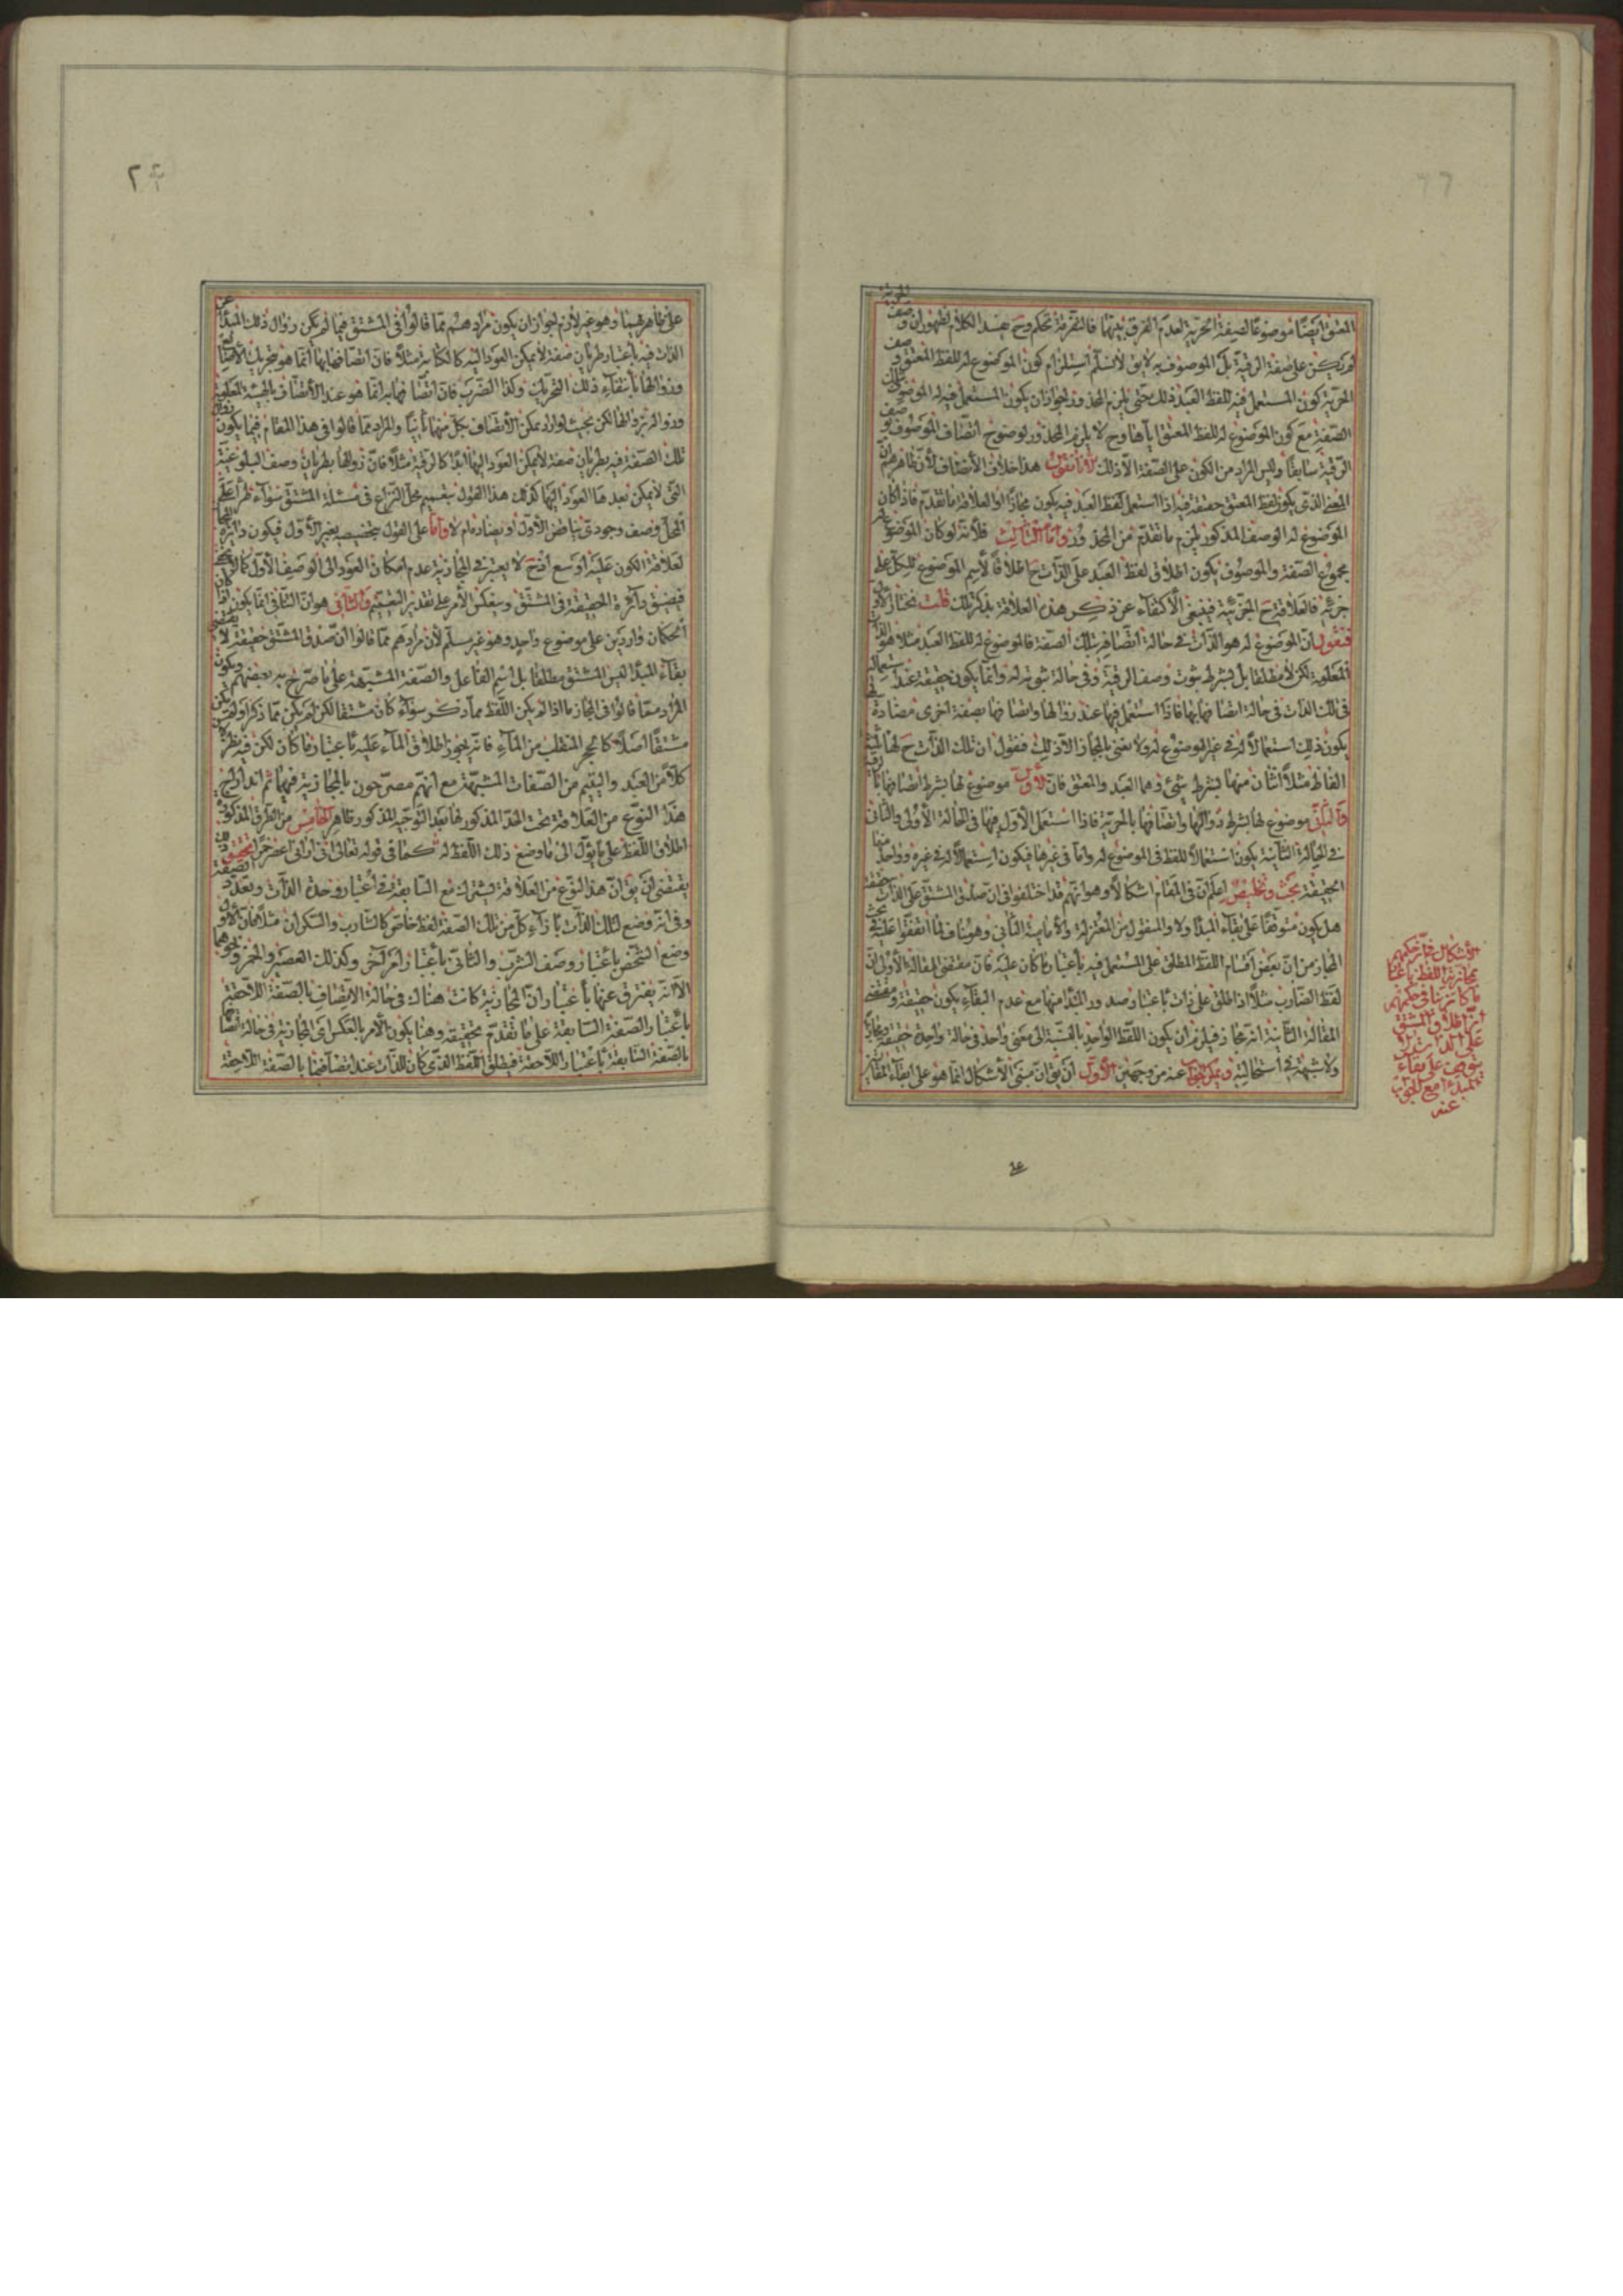 المعتق ايضا موضوعا لصفة الحرية لعدم الفرق بينهما فالتفرقة تحكم وح هذا الكلام لظهور ان وصف الحرية
لم يكن على صفة الرقية بل الموصوف به لا يق لانسلم استلزام كون الموضوع له للفظ المعتق وصف
الحرية كون المستعمل فيه للفظ العبد ذلك حتى يلزم المحذور لجواز ان يكون المستعمل فيه له الموصوف بتلك
الصفة مع كون الموضوع له للفظ المعتق اياها وح لا يلزم المحذور لوضوح اتصاف الموصوف بوصف
الرقية سابقا وليس المراد من الكون على الصفة الا ذلك لانا نقول هذا خلاف الانصاف لان ظاهرهم ان
المعنى الذى يكون لفظ المعتق حقيقة فيه اذا استعمل لفظ العبد فيه يكون مجازا والعلاقة ما تقدم فاذا كان
الموضوع له الوصف المذكور يلزم ما تقدم من المحذور واما الثالث فلانه لو كان الموضوع له
مجموع الصفة والموصوف يكون اطلاق لفظ العبد على الذات ح اطلاقا لاسم الموضوع للكل على
جزئه فالعلاقة ح الجزئية فينبغى الاكتفاء عن ذكر هذه العلاقة بذكر تلك قلت نختار الاول
فنقول ان الموضوع له هو الذات فى حالة اتصافه بتلك الصفة فالموضوع له للفظ العبد مثلا هو الذات
المعلومة لكن لا مطلقا بل بشرط ثبوت وصف الرقية وفى حالة ثبوته له وانما يكون حقيقة عند استعماله
فى تلك الذات فى حالة اتصافها بها فاذا استعمل فيها عند زوالها واتصافها بصفة اخرى مضادة لها
يكون ذلك استعمالا له فى غير الموضوع له ولا نعنى بالمجاز الا ذلك فنقول ان تلك الذات ح لها ثلثة
الفاظ مثلا اثنان منها بشرط شئ وهما العبد والمعتق فان الاول موضوع لها بشرط اتصافها بالرقية
والثانى موضوع لها بشرط زوالها واتصافها بالحرية فاذا استعمل الاول فيها فى الحالة الاولى والثانى
فى الحالة الثانية يكون استعمالا للفظ فى الموضوع له واما فى غيرها فيكون استعمالا له فى غيره وواحد منها
الحقيقة بحث وتخليص اعلم ان فى المقام اشكالا وهو انهم قد اختلفوا فى ان صدق المشتق على الذات حقيقة
هل يكون متوقفا على بقاء المبدا ولا والمنقول من المعتزلة والامامية الثانى وهو مناف لما اتفقوا عليه فى بحث
المجاز من ان بعض اقسام اللفظ المطلق على المستعمل فيه باعتبار ما كان عليه فان مقتضى المقالة الاولى ان
لفظ الضارب مثلا اذا اطلق على ذات باعتبار صدور المبدا منها مع عدم البقاء يكون حقيقة ومقتضى
المقالة الثانية انه مجاز فيلزم ان يكون اللفظ الواحد بالنسبة الى معنى واحد فى حالة واحدة حقيقة ومجازا
ولا شبهة فى استحالته ويمكن الجواب عنه من وجهين الاول ان يق ان مبنى الاشكال انما هو على ابقاء المقالتين
الاشكال فى حكمهم
بمجازية اللفظ باعتبار
ما كان ينافى حكمهم
ان اطلاق المشتق
على الذات
يتوقف على بقاء
المبدء مع الجواب
عنه
على ظاهرهما وهو غير لازم لجواز ان يكون مرادهم مما قالوا فى المشتق فيما لم يكن زوال ذلك المبدا عن
الذات فيه باعتبار طريان صفة لا يمكن العود اليه كالكتابة مثلا فان اتصافها بها انما هو بتحريك الاصابع
وزوالها بانتفاء ذلك التحريك وكذا الضرب فان اتصافها به انما هو عند الاتصاف بالهيئة المعلومة
وزواله بزوالها لكن بحيث لو اراد يمكن الاتصاف بكل منهما ثانيا والمراد مما قالوا فى هذا المقام فيما يكون زوال
تلك الصفة فيه بطريان صفة لا يمكن العود اليها ابدا كالرقية مثلا فان زوالها بطريان وصف البلوغ عنه
التى لا يمكن بعدها العود اليها كذلك هذا القول بتعميم محل النزاع فى مسئلة المشتق سواء طرا على
المحل وصف وجودى يناقض الاول او يضاده ام لا واما على القول بتخصيصه بغير الاول فيكون دائرة المجاز
لعلاقة الكون عليه اوسع اذ ح لا يعتبر فى المجازية عدم امكان العود الى الوصف الاول كما لا يخفى
فيضيق دائرة الحقيقة فى المشتق وينعكس الامر على تقدير التعميم والثانى هو ان التنافى انما يكون لو كان
الحكمان واردين على موضوع واحد وهو غير مسلم لان مرادهم مما قالوا ان صدق المشتق حقيقة لا يقتضى
بقاء المبدا ليس المشتق مطلقا بل اسم الفاعل والصفة المشبهة على ما صرح به بعضهم ويكون
المراد مما قالوا فى المجاز ما اذا لم يكن اللفظ مما ذكر سواء كان مشتقا لكن لم يكن مما ذكر او لم يكن
مشتقا اصلا كالحجر المنقلب من الماء فانه يجوز اطلاق الماء عليه باعتبار ما كان لكن فيه نظر لان
كلا من العبد واليتيم من الصفات المشبهة مع انهم مصرحون بالمجازية فيهما ثم اندراج
هذا النوع من العلاقة تحت الحد المذكور لها بعد التوجيه المذكور ظاهر الخامس من الطرق المذكورة
اطلاق اللفظ على ما يؤل الى ما وضع ذلك اللفظ له كما فى قوله تعالى انى ارانى اعصر خمرا وتحقيق ذلك
يقتضى ان يق ان هذا النوع من العلاقة يشترك مع السابقة فى اعتبار وحدة الذات وتعدد الصفة
وفى انه وضع لتلك الذات بازاء كل من تلك الصفة لفظ خاص كالشارب والسكران مثلا فان الاول
وضع الشخص باعتبار وصف الشرب والثانى باعتبار امر آخر وكذلك العصير والخمر ونحوهما
الا انه يفترق عنها باعتبار ان المجازية كانت هناك فى حالة الاتصاف بالصفة اللاحقة
باعتبار الصفة السابقة على ما تقدم تحقيقه وهنا يكون الامر بالعكس اى المجازية فى حالة اتصافها
بالصفة السابقة باعتبار اللاحقة فيطلق اللفظ الذى كان للذات عند اتصافها بالصفة اللاحقة